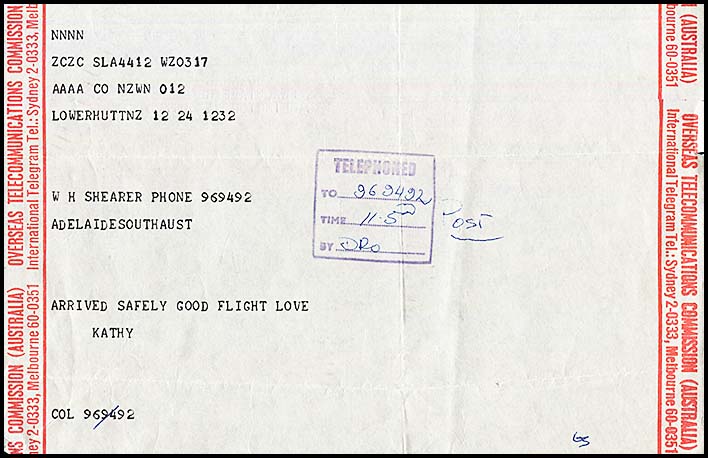 NNNN
ZCZC SLA4412 WZ0317
AAAA CO NZWN 012
LOWERHUTTNZ 12 24 1232
W H SHEARER PHONE 969492
ADELAIDESOUTHAUST
TELEPHONED
TO 969492
TIME 11.5
BY DRO
OST
ARRIVED SAFELY GOOD FLIGHT LOVE
KATHY
COL 969492
OVERSEAS TELECOMMUNICATIONS COMMISSION
International Telegram Tel.: Sydney 2-0333, Mel
NS COMMISSION (AUSTRALIA)
ney 2-0333, Melbourne 60-0351
N (AUSTRALIA)
bourne 60-0351
OVERSEAS TELECOMMUNICATIONS COMMISSION (AUSTRALIA)
International Telegram Tel.: Sydney 2-0333, Melbourne 60-0351